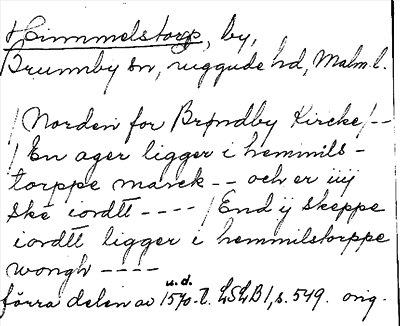 Himmelstorp, by,
Brunnby sn, Luggude hd, Malm. l.
/Norden for Brøndby Kircke/--
/En ager ligger i hemmils-
torppe marck -- och er iiij
ske iordtt ---- /End ij skeppe
iordtt ligger i hemmilstorppe
wongh ----
u.d.
förra delen av 1570-t. LSLB1, s. 549. orig.